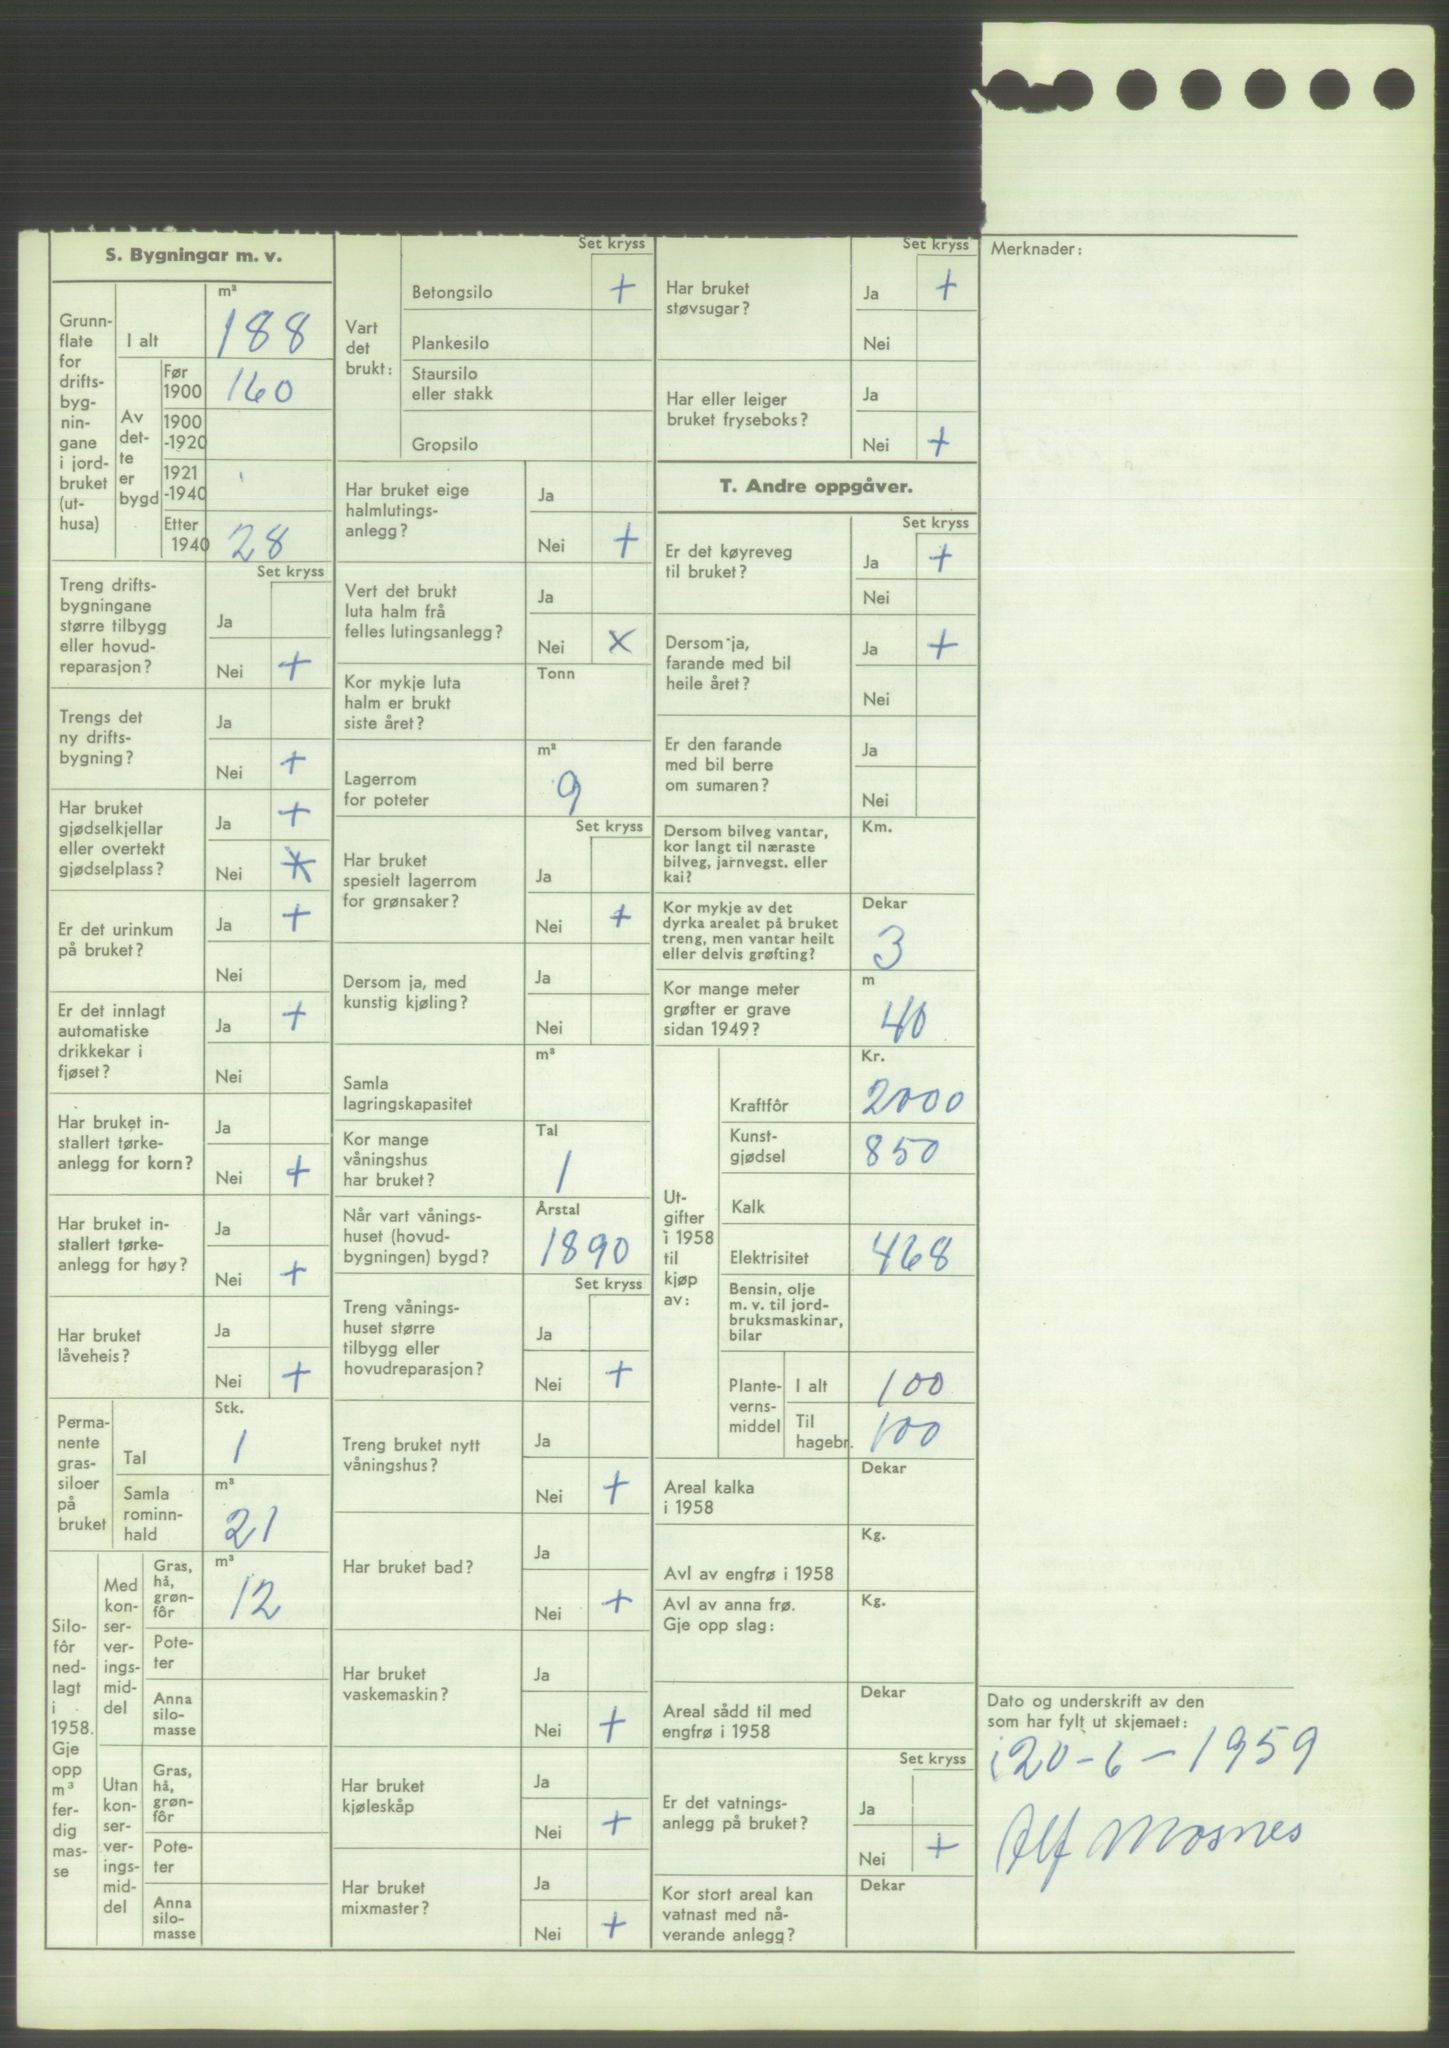 S. Bygningar m. v.
Grunn-
flate
for
drifts-
byg-
nin-
gane
i jord-
bruket
(ut-
husa)
I alt
m²
188
Av
det-
te
er
bygd
Før
1900
160
1900
-1920
1921
-1940
Etter
1940
28
Set kryss
Treng drifts-
bygningane
større tilbygg
eller hovud-
reparasjon?
Ja
Nei +
Trengs det
ny drifts-
bygning?
Ja
Nei +
Har bruket
gjødselkjellar
eller overtekt
gjødselplass?
Ja +
Nei
Er det urinkum
på bruket?
Ja +
Nei
Er det innlagt
automatiske
drikkekar i
fjøset?
Ja +
Nei
Har bruket in-
stallert tørke-
anlegg for korn?
Ja
Nei +
Har bruket in-
stallert tørke-
anlegg for høy?
Ja
Nei +
Har bruket
låveheis?
Ja
Nei +
Perma-
nente
gras-
siloer
på
bruket
Tal
Stk.
1
Samla
rominn-
hald
m³
21
Silo-
fôr
ned-
lagt
i
1958.
Gje
opp
m³
fer-
dig
mas-
se
Med
kon-
ser-
ver-
ings-
mid-
del
Gras,
hå,
grøn-
fôr
m³
12
Pote-
ter
Anna
silo-
masse
Utan
kon-
ser-
ver-
ings-
mid-
del
Gras,
hå,
grøn-
fôr
Pote-
ter
Anna
silo-
masse
Set kryss
Vart
det
brukt:
Betongsilo +
Plankesilo
Staursilo
eller stakk
Gropsilo
Har bruket eige
halmlutings-
anlegg?
Ja
Nei +
Vert det brukt
luta halm frå
felles lutingsanlegg?
Ja
Nei x
Kor mykje luta
halm er brukt
siste året?
Tonn
Lagerrom
for poteter
m²
9
Set kryss
Har bruket
spesielt lagerrom
for grønsaker?
Ja
Nei +
Dersom ja, med
kunstig kjøling?
Ja
Nei
Samla
lagringskapasitet
m³
Kor mange
våningshus
har bruket?
Tal
1
Når vart vånings-
huset (hovud-
bygningen) bygd?
Årstal
1890
Set kryss
Treng vånings-
huset større
tilbygg eller
hovudreparasjon?
Ja
Nei +
Treng bruket nytt
våningshus?
Ja
Nei +
Har bruket bad?
Ja
Nei +
Har bruket
vaskemaskin?
Ja
Nei +
Har bruket
kjøleskåp
Ja
Nei +
Har bruket
mixmaster?
Ja
Nei +
Set kryss
Har bruket
støvsugar?
Ja +
Nei
Har eller leiger
bruket fryseboks?
Ja
Nei +
T. Andre oppgåver.
Set kryss
Er det køyreveg
til bruket?
Ja +
Nei
Dersom ja,
farande med bil
heile året?
Ja +
Nei
Er den farande
med bil berre
om sumaren?
Ja
Nei
Dersom bilveg vantar,
kor langt til næraste
bilveg, jarnvegst. eller
kai?
Km.
Kor mykje av det
dyrka arealet på bruket
treng, men vantar heilt
eller delvis grøfting?
Dekar
3
Kor mange meter
grøfter er grave
sidan 1949?
m
40
Ut-
gifter
i 1958
til
kjøp
av:
Kr.
Kraftfôr 2000
Kunst-
gjødsel 850
Kalk
Elektrisitet 468
Bensin, olje
m. v. til jord-
bruksmaskinar,
bilar
Plante-
verns-
middel
I alt 100
Til
hagebr. 100
Areal kalka
i 1958
Dekar
Avl av engfrø i 1958
Kg.
Avl av anna frø.
Gje opp slag:
Kg.
Areal sådd til med
engfrø i 1958
Dekar
Set kryss
Er det vatnings-
anlegg på bruket?
Ja
Nei +
Kor stort areal kan
vatnast med nå-
verande anlegg?
Dekar
Merknader:
Dato og underskrift av den
som har fylt ut skjemaet:
20-6-1959
Alf Mosnes